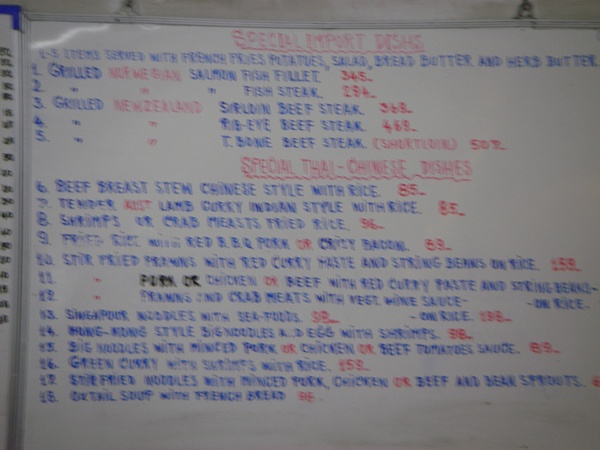 SPECIAL IMPORT DISHS
1-5 ITEMS SERVED WITH FRENCH FRIES POTATOES, SALAD, BREAD BUTTER AND HERB BUTTER
1. GRILLED NORWEGIAN SALMON FISH FILLET. 345.-
2. " " " FISH STEAK. 284.-
3. GRILLED NEWZEALAND SIRLOIN BEEF STEAK. 368.-
4. " " RIB-EYE BEEF STEAK. 468.-
5. " " T. BONE BEEF STEAK. (SHORTLOIN)
SPECIAL THAI-CHINESE DISHES
6. BEEF BREAST STEW CHINESE STYLE WITH RICE. 85.-
7. TENDER LAMB CURRY INDIAN STYLE WITH RICE. 85.-
8. SHRIMPS OR CRAB MEATS FRIED RICE. 96.-
9. FRIED RICE WITH RED B.B.Q PORK OR CRICY BACON. 69.-
10. STIR FRIED PRAWNS WITH RED CURRY PASTE AND STRING BEANS ON RICE. 159.-
11. " PORK OR CHICKEN OR BEEF WITH RED CURRY PASTE AND STRING BEANS-
12. " PRAWNS AND CRAB MEATS WITH VEGT. WINE SAUCE- -ON RICE.
13. SINGAPOUR NOODLES WITH SEA-FOODS. 98.- -ON RICE. 198.-
14. HONG-KONG STYLE BIG NOODLES AND EGG WITH SHRIMPS. 98.-
15. BIG NUDLES WITH MINCED PORK OR CHICKEN OR BEEF TOMATOES SAUCE. 89.-
16. GREEN CURRY WITH SHRIMPS WITH RICE. 159.-
17. STIR FRIED NUDLES WITH MINCED PORK, CHICKEN OR BEEF AND BEAN SPROUTS.
18. OXTAIL SOUP WITH FRENCH BREAD